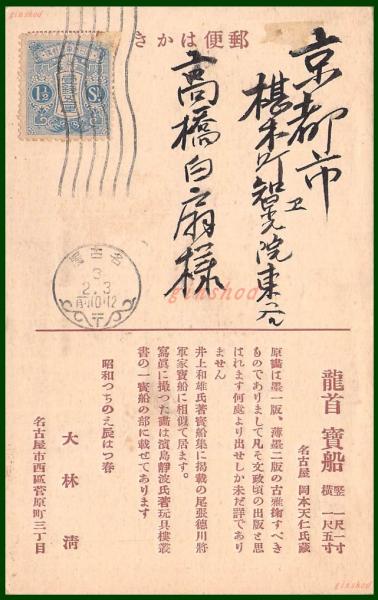 郵便はかき
1½ Sn.
京都市
椹木町智恵光院東入
高橋白扇様
名古屋
3
2.3
前10-12
龍首寶船
竪 一尺一寸
横 一尺五寸
名古屋 岡本天仁氏藏
原畵は墨一版、薄墨二版の古雅掬すべき
ものでありまして凡そ文政頃の出版と思
はれます何處より出せしか未だ詳であり
ません
井上和雄氏著寳船集に掲載の尾張德川將
軍家寳船に相似て居ます。
寫眞に撮つた畵は濱島靜波氏著玩具樓叢
書の一寳船の部に載せてあります
昭和つちのえ辰はつ春
大林淸
名古屋市西區菅原町三丁目
ginshod
ginshod
ginshod